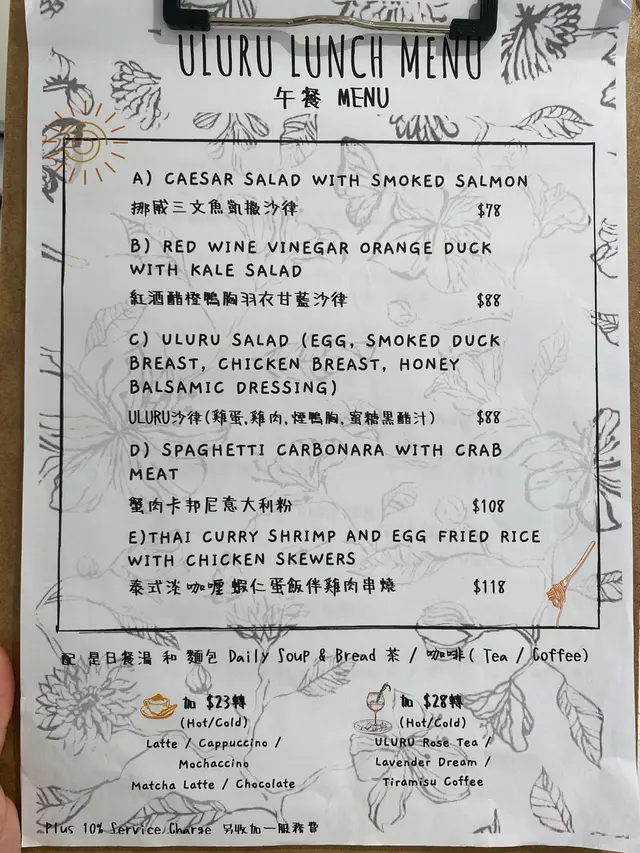 ULURU LUNCH MENU
午餐 MENU
A) CAESAR SALAD WITH SMOKED SALMON
挪威三文魚凱撒沙律 $78
B) RED WINE VINEGAR ORANGE DUCK
WITH KALE SALAD
紅酒醋橙鴨胸羽衣甘藍沙律 $88
C) ULURU SALAD (EGG, SMOKED DUCK
BREAST, CHICKEN BREAST, HONEY
BALSAMIC DRESSING)
ULURU沙律(雞蛋,雞肉,煙鴨胸,蜜糖黑醋汁) $88
D) SPAGHETTI CARBONARA WITH CRAB
MEAT
蟹肉卡邦尼意大利粉 $108
E)THAI CURRY SHRIMP AND EGG FRIED RICE
WITH CHICKEN SKEWERS
泰式淡咖喱 蝦仁蛋飯伴雞肉串燒 $118
配 是日餐湯 和 麵包 Daily Soup & Bread 茶 / 咖啡( Tea / Coffee)
加 $23轉
(Hot/Cold)
Latte / Cappuccino /
Mochaccino
Matcha Latte / Chocolate
加 $28轉
(Hot/Cold)
ULURU Rose Tea /
Lavender Dream /
Tiramisu Coffee
Plus 10% Service Charge 另收加一服務費